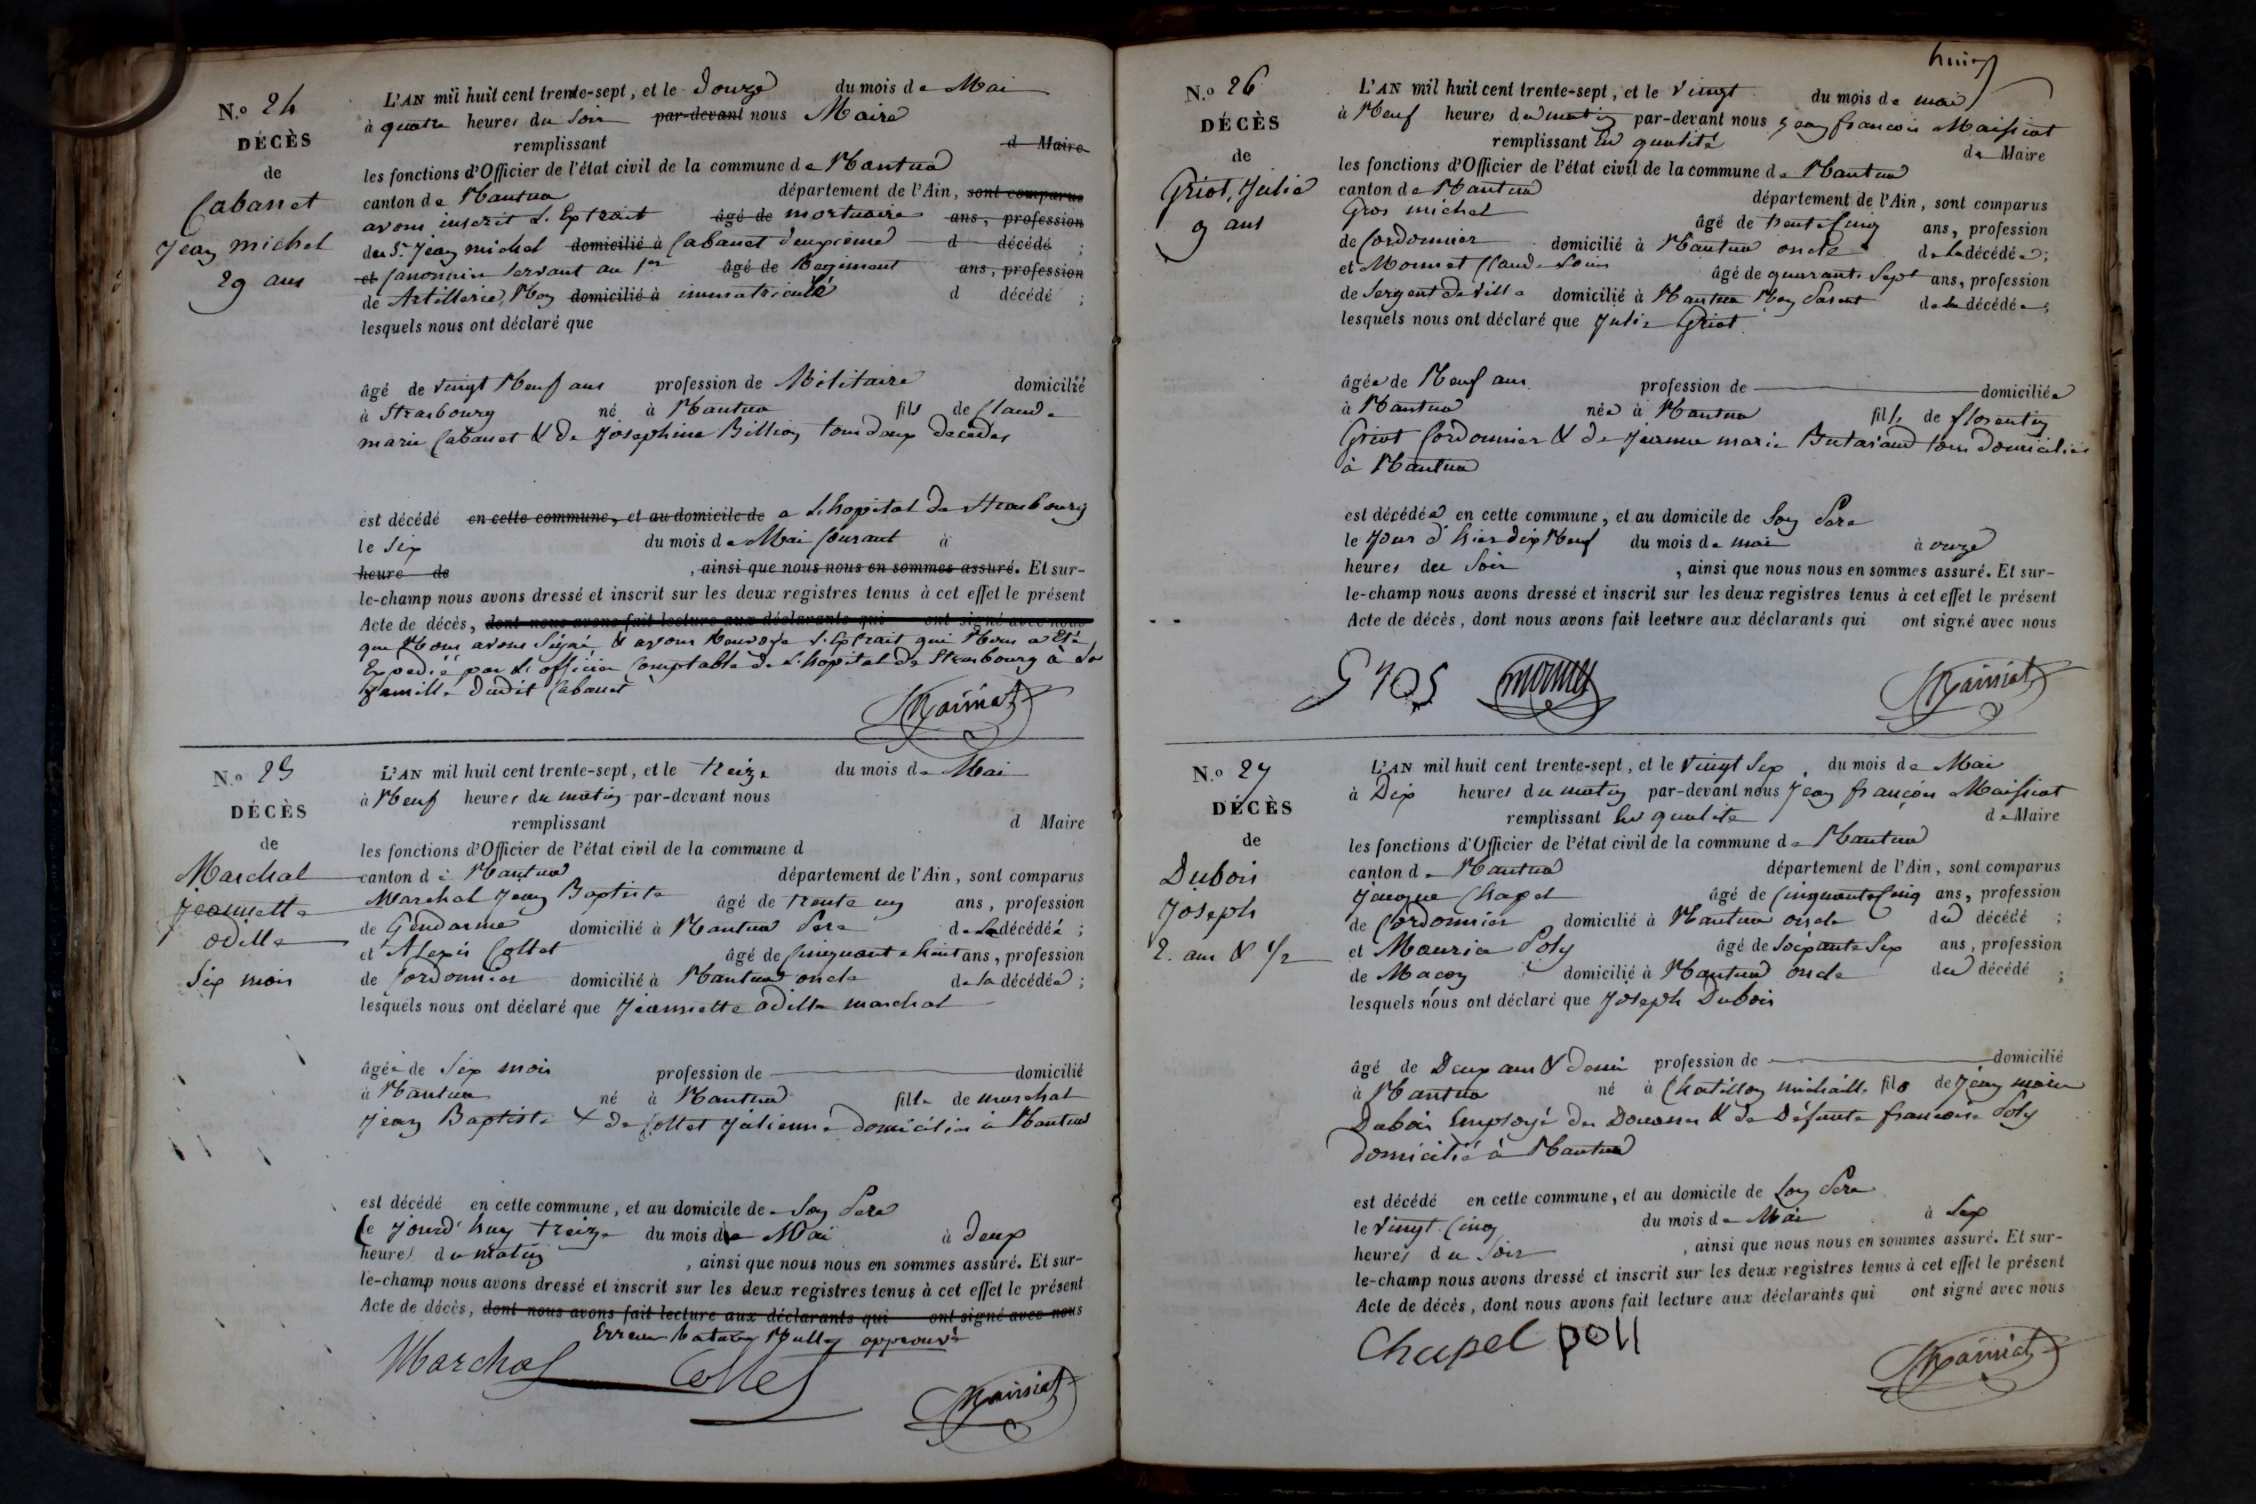 N.º 24
DÉCÈS
de
Cabanet
Jean michel
29 ans
L'AN mil huit cent trente-sept, et le douze du mois de Mai
à quatre heures du soir par-devant nous Maire
remplissant d Maire
les fonctions d'Officier de l'état civil de la commune de Nantua
canton de Nantua département de l'Ain, sont comparus
avons inscrit L'Extrait âgé de mortuaire ans, profession
du Sr. Jean michel domicilié à Cabanet deuxième d décédé ;
et Canonnier servant au 1er âgé de Regiment ans, profession
de Artillerie, Non domicilié à immatriculé d décédé ;
lesquels nous ont déclaré que
âgé de vingt Neuf ans profession de Militaire domicilié
à Strasbourg né à Nantua fils de Claude
marie Cabanet & de Josephine Billion tous deux décédés
est décédé en cette commune, et au domicile de a L'hopital de Strasbourg
le six du mois de Mai Courant à
heure de , ainsi que nous nous en sommes assuré. Et sur-
le-champ nous avons dressé et inscrit sur les deux registres tenus à cet effet le présent
Acte de décès, dont nous avons fait lecture aux déclarants qui ont signé avec nous
que Nous avons signé & avons Renvoyé L'Extrait qui Nous a Eté
Expedié par L'officier Comptable de L'hopital de Strasbourg à la
famille dudit Cabanet
Maissiat
N.º 25
DÉCÈS
de
Marchal
Jeannette
odille
Six mois
L'AN mil huit cent trente-sept, et le treize du mois de Mai
à Neuf heures du matin par-devant nous
remplissant d Maire
les fonctions d'Officier de l'état civil de la commune d
canton d è Nantua département de l'Ain, sont comparus
Marchal Jean Baptiste âgé de trente un ans, profession
de Gendarme domicilié à Nantua Pere de la décédée ;
et Alexis Collet âgé de Cinquante huit ans, profession
de Cordonnier domicilié à Nantua oncle de la décédée ;
lesquels nous ont déclaré que Jeannette odille marchal
âgée de Six mois profession de domicilié
à Nantua né à Nantua fille de marchal
Jean Baptiste & de Collet Julienne domiciliés à Nantua
est décédé en cette commune, et au domicile de Son Pere
le Jourd'huy treize du mois de Mai à deux
heures du matin , ainsi que nous nous en sommes assuré. Et sur-
le-champ nous avons dressé et inscrit sur les deux registres tenus à cet effet le présent
Acte de décès, dont nous avons fait lecture aux déclarants qui ont signé avec nous
Erreur Nulle approuvé
Marchal Collet
Maissiat
huit
N.º 26
DÉCÈS
de
Griot, Julie
9 ans
L'AN mil huit cent trente-sept, et le vingt du mois de mai
à Neuf heures du matin par-devant nous Jean francois Maissiat
remplissant En qualité de Maire
les fonctions d'Officier de l'état civil de la commune de Nantua
canton de Nantua département de l'Ain, sont comparus
Gros michel âgé de trente Cinq ans, profession
de Cordonnier domicilié à Nantua oncle de la décédée ;
et Monnet Claude Louis âgé de quarante Sept ans, profession
de Sergent de ville domicilié à Nantua Non Parent de la décédée ;
lesquels nous ont déclaré que Julie Griot
âgée de Neuf ans profession de domiciliée
à Nantua née à Nantua fille de florentin
Griot Cordonnier & de Jeanne marie Butavand tous domiciliés
à Nantua
est décédée en cette commune, et au domicile de Son Pere
le Jour d'hier dix Neuf du mois de mai à onze
heures du Soir , ainsi que nous nous en sommes assuré. Et sur-
le-champ nous avons dressé et inscrit sur les deux registres tenus à cet effet le présent
Acte de décès, dont nous avons fait lecture aux déclarants qui ont signé avec nous
gros monnet
Maissiat
N.º 27
DÉCÈS
de
Dubois
Joseph
2. ans & 1/2
L'AN mil huit cent trente-sept, et le vingt Six du mois de Mai
à Dix heures du matin par-devant nous Jean françois Maissiat
remplissant En qualité de Maire
les fonctions d'Officier de l'état civil de la commune de Nantua
canton de Nantua département de l'Ain, sont comparus
Jacque Chapel âgé de Cinquante Cinq ans, profession
de Cordonnier domicilié à Nantua oncle du décédé ;
et Maurice Poly âgé de Soixante Six ans, profession
de Macon domicilié à Nantua oncle du décédé ;
lesquels nous ont déclaré que Joseph Dubois
âgé de Deux ans & demi profession de domicilié
à Nantua né à Chatillon michaille fils de Jean marie
Dubois Employé des Douanes & de Défunte francoise Poly
domicilié à Nantua
est décédé en cette commune, et au domicile de Son Pere
le vingt Cinq du mois de Mai à Six
heures du Soir , ainsi que nous nous en sommes assuré. Et sur-
le-champ nous avons dressé et inscrit sur les deux registres tenus à cet effet le présent
Acte de décès, dont nous avons fait lecture aux déclarants qui ont signé avec nous
Chapel poli
Maissiat